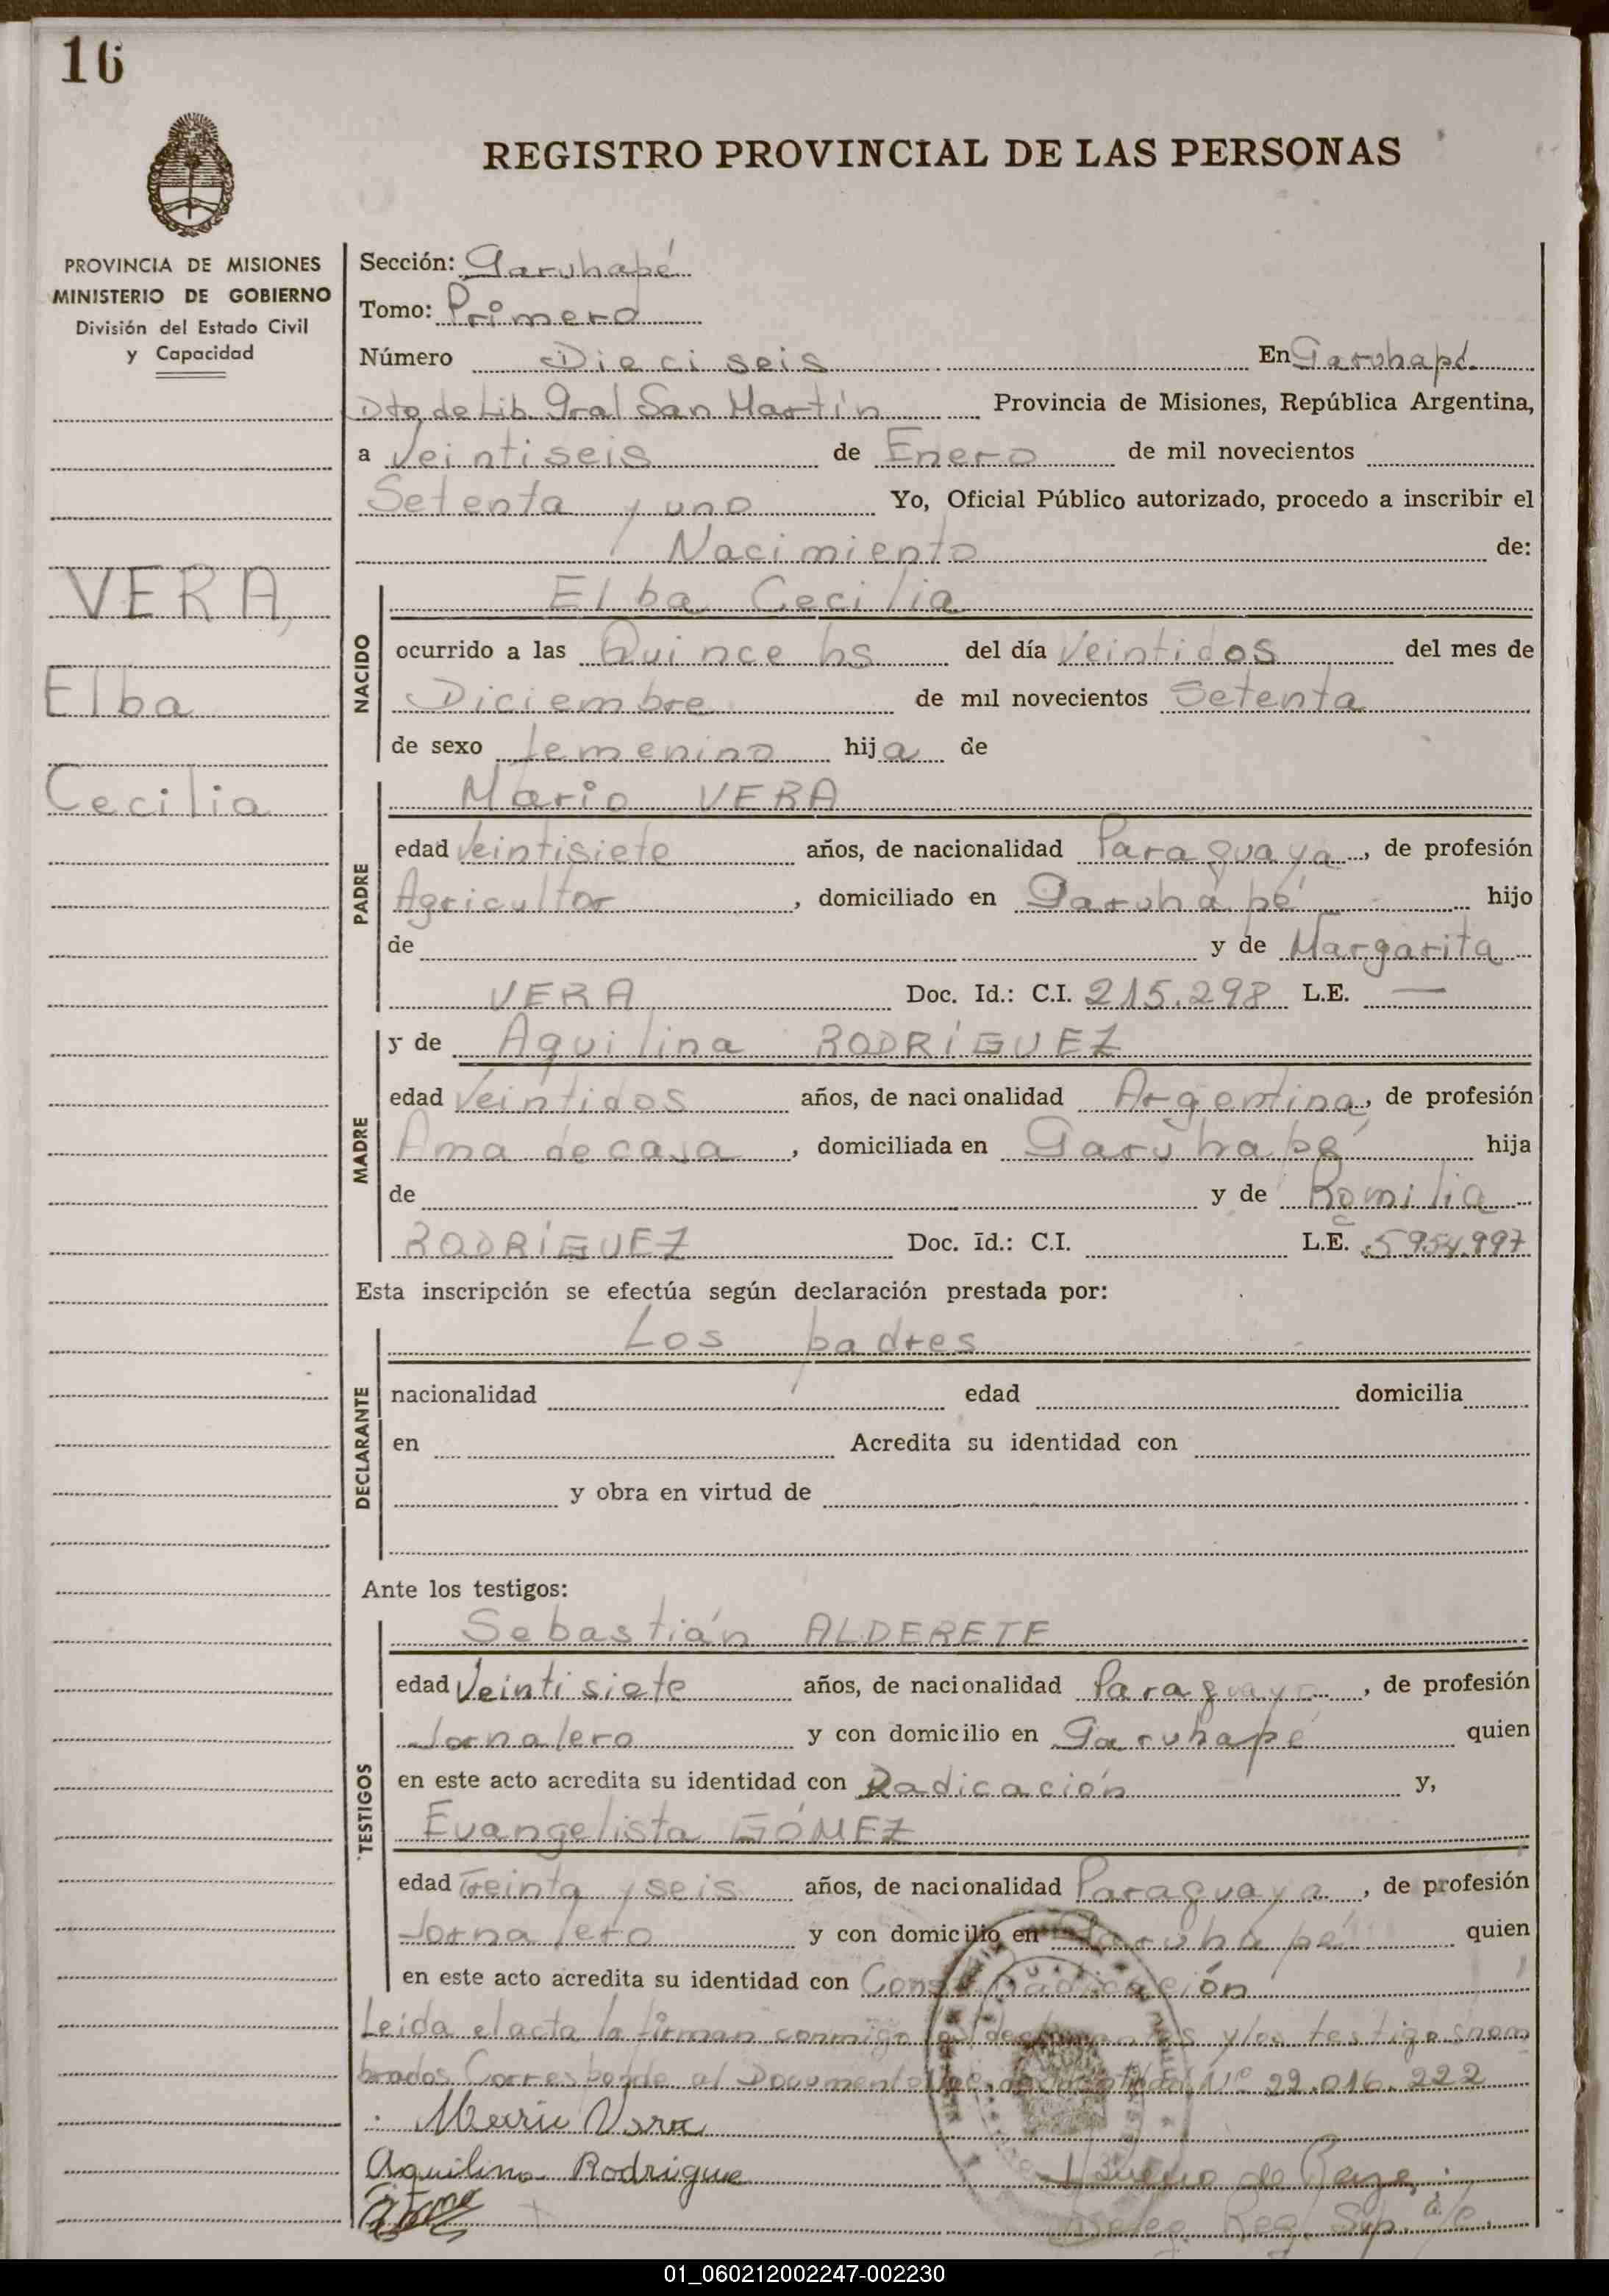 16
REGISTRO PROVINCIAL DE LAS PERSONAS
PROVINCIA DE MISIONES
MINISTERIO DE GOBIERNO
División del Estado Civil
y Capacidad
VERA,
Elba
Cecilia
Sección: Garuhapé
Tomo: Primero
Número Dieciseis En Garuhapé
Dto de Lib. Gral San Martín Provincia de Misiones, República Argentina,
a Veintiseis de Enero de mil novecientos
Setenta y uno Yo, Oficial Público autorizado, procedo a inscribir el
Nacimiento de:
NACIDO
Elba Cecilia
ocurrido a las Quince hs del día Veintidos del mes de
Diciembre de mil novecientos Setenta
de sexo femenino hija de
PADRE
Mario VERA
edad Veintisiete años, de nacionalidad Paraguaya, de profesión
Agricultor, domiciliado en Garuhapé hijo
de y de Margarita
VERA Doc. Id.: C.I. 215.298 L.E. —
MADRE
y de Aquilina RODRÍGUEZ
edad Veintidos años, de nacionalidad Argentina, de profesión
Ama de casa, domiciliada en Garuhapé hija
de y de Romilia
RODRÍGUEZ Doc. Id.: C.I. L.E. 5954.997
Esta inscripción se efectúa según declaración prestada por:
DECLARANTE
Los padres
nacionalidad edad domicilia
en Acredita su identidad con
y obra en virtud de
Ante los testigos:
TESTIGOS
Sebastián ALDERETE
edad Veintisiete años, de nacionalidad Paraguaya, de profesión
Jornalero y con domicilio en Garuhapé quien
en este acto acredita su identidad con Radicación y,
Evangelista GÓMEZ
edad Treinta y seis años, de nacionalidad Paraguaya, de profesión
Jornalero y con domicilio en Garuhapé quien
en este acto acredita su identidad con Radicación
Leida el acta la firman conmigo los declarantes y los testigos nom
brados Corresponde al Documento Nac. de Identidad Nº 29.016.222
Mario Vera
Aquilina Rodrigue
Reg. Sup. a/c.
01_060212002247-002230